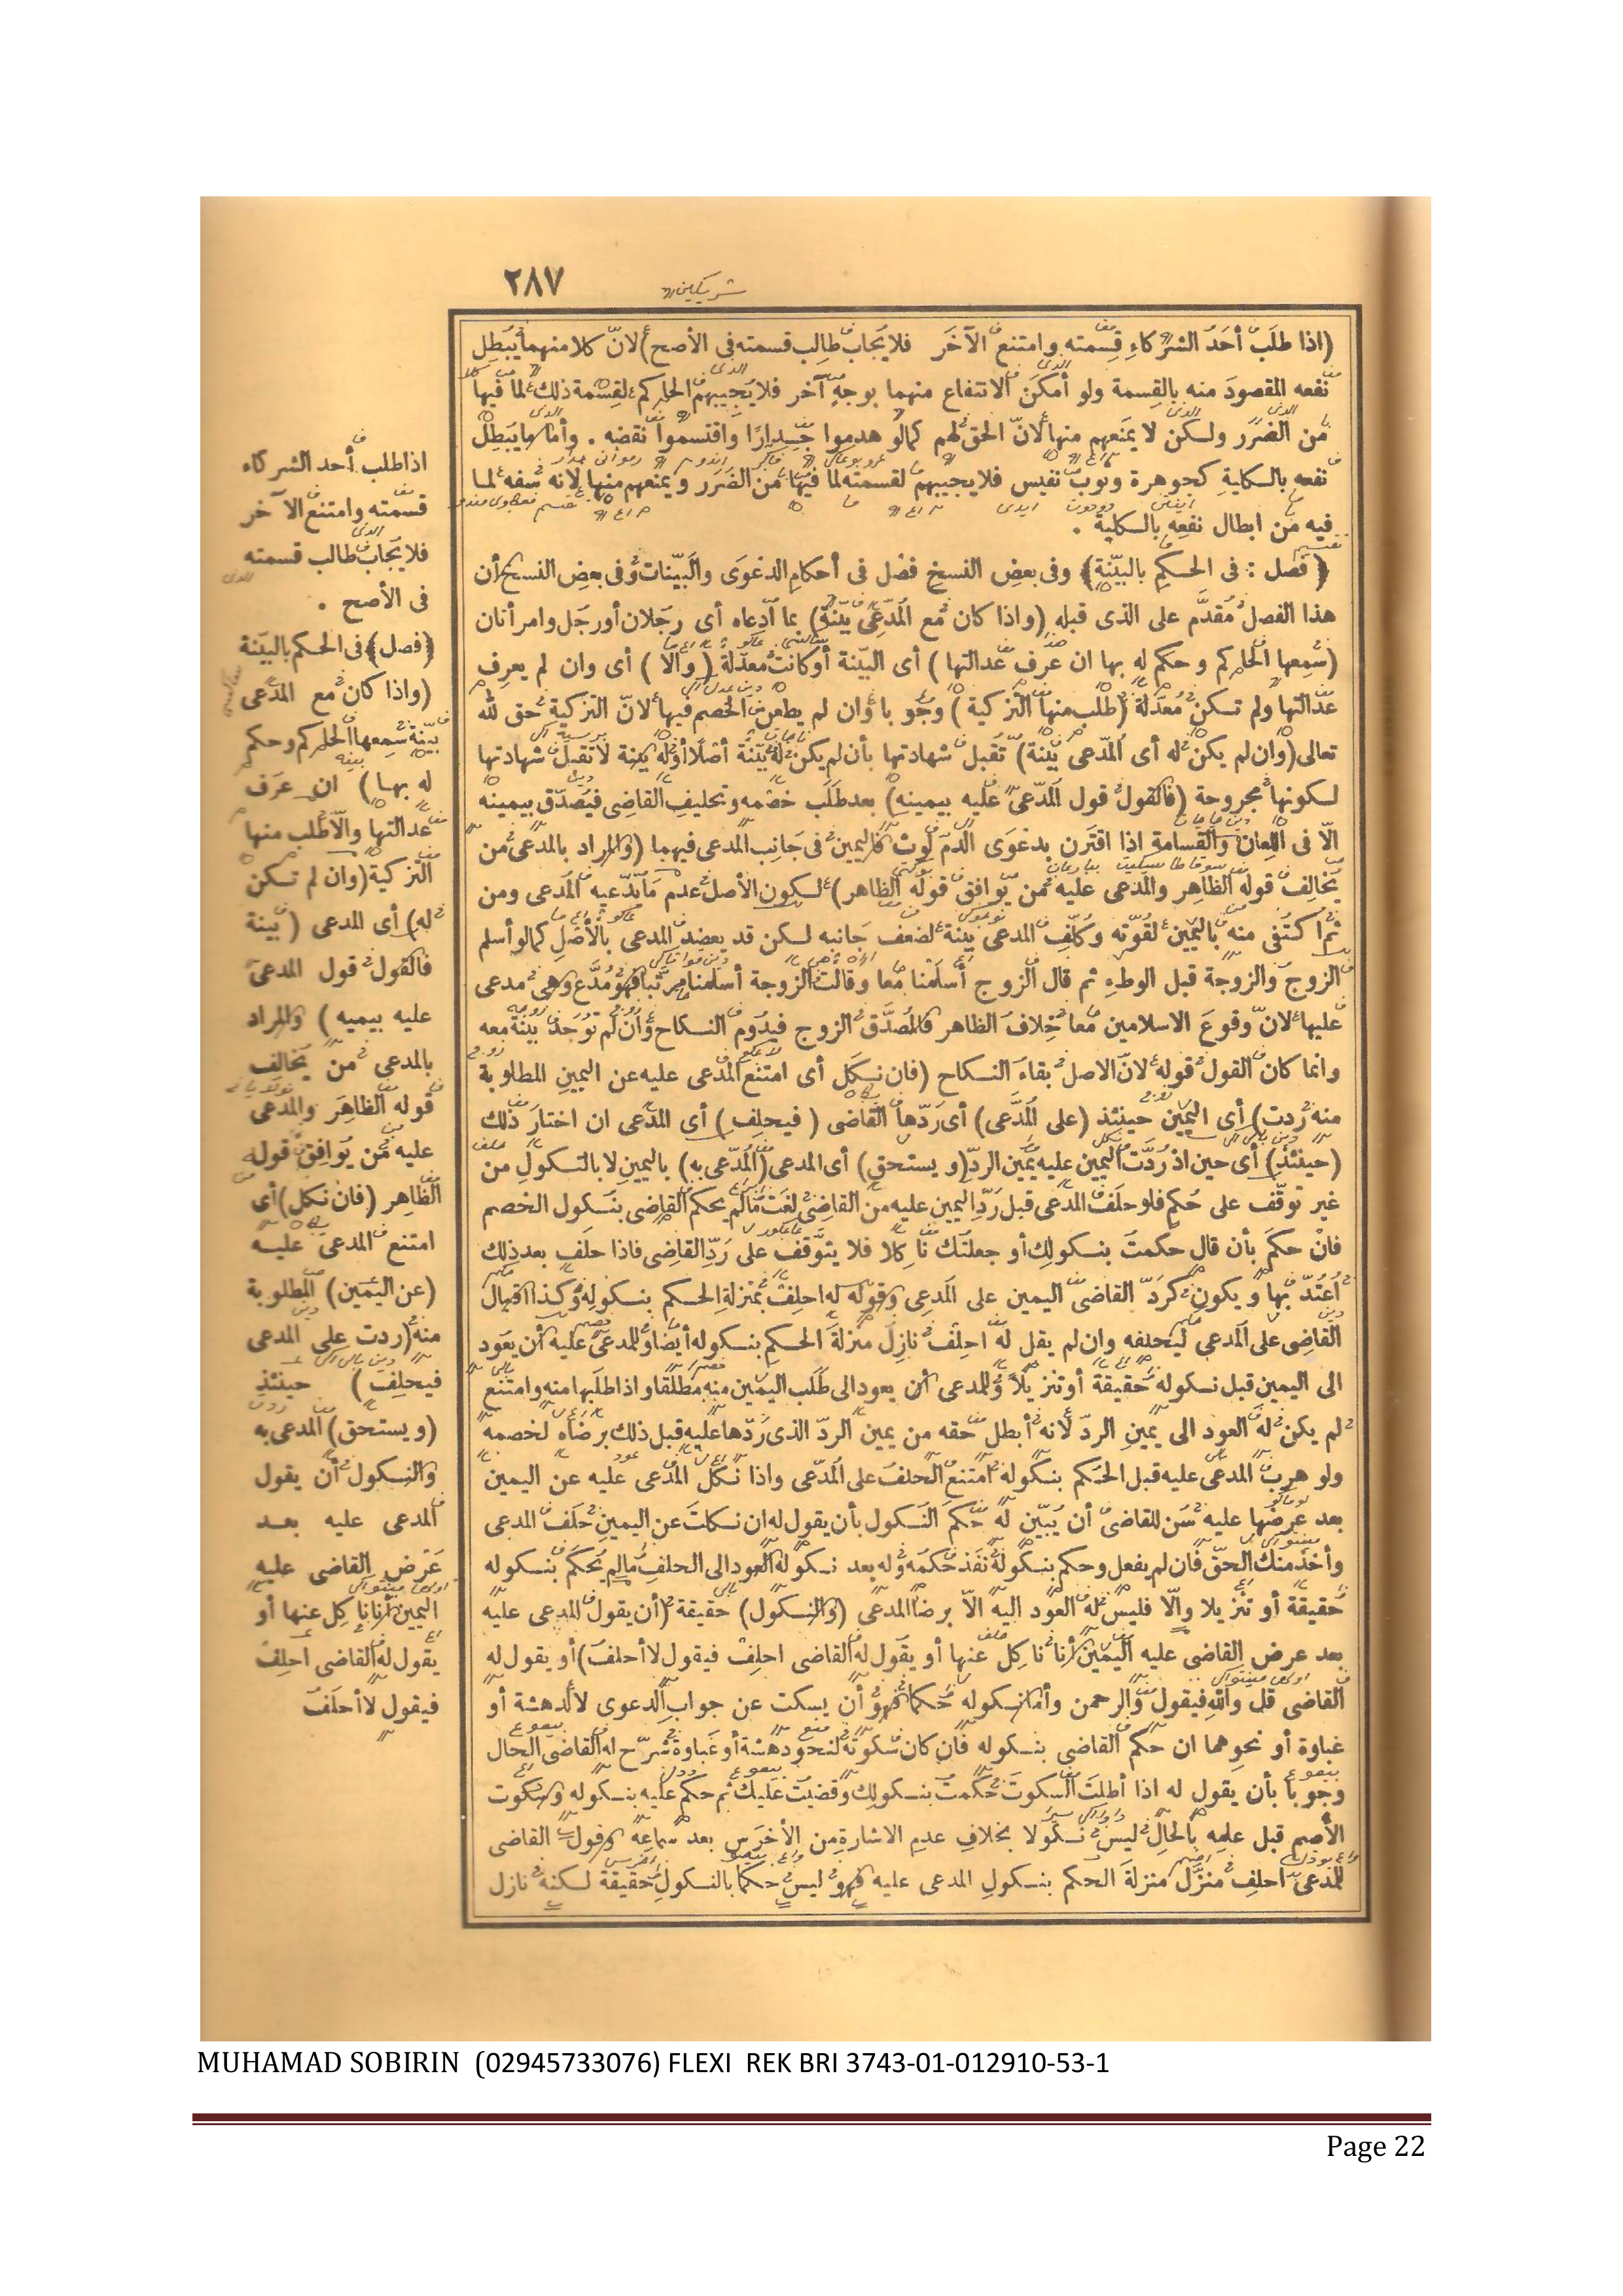 ٢٨٧
(اذا طلب أحد الشركاء قسمته وامتنع الآخر فلا يجاب طالب قسمته فى الأصح) لان كلا منهما يبطل
نفعه المقصود منه بالقسمة ولو أمكن الانتفاع منهما بوجه آخر فلا يجيبهم الحاكم لقسمة ذلك لما فيها
من الضرر ولكن لا يمنعهم منها لان الحق لهم كما لو هدموا جدارا واقتسموا نقضه . وأما ما يبطل
نفعه بالكلية كجوهرة وثوب نفيس فلا يجيبهم لقسمته لما فيها من الضرر ويمنعهم منها لانه سفه لما
فيه من ابطال نفعه بالكلية .
(فصل : فى الحكم بالبينة) وفى بعض النسخ فصل فى أحكام الدعوى والبينات وفى بعض النسخ أن
هذا الفصل مقدم على الذى قبله (واذا كان مع المدعى بينة) بما ادعاه أى رجلان أو رجل وامرأتان
(سمعها الحاكم وحكم له بها ان عرف عدالتها) أى البينة أو كانت معدلة (والا) أى وان لم يعرف
عدالتها ولم تكن معدلة (طلب منها التزكية) وجوبا وان لم يطعن الخصم فيها لان التزكية حق لله
تعالى (وان لم يكن له أى المدعى بينة) تقبل شهادتها بأن لم يكن له بينة أصلا أو له بينة لا تقبل شهادتها
لكونها مجروحة (فالقول قول المدعى عليه بيمينه) بعد طلب خصمه وتحليف القاضى فيصدق بيمينه
الا فى اللعان والقسامة اذا اقترن بدعوى الدم لوث فاليمين فى جانب المدعى فيهما (والمراد بالمدعى من
يخالف قوله الظاهر والمدعى عليه من يوافق قوله الظاهر) لكون الأصل عدم ما يدعيه المدعى ومن
ثم اكتفى منه باليمين لقوته وكلف المدعى بينة لضعف جانبه لكن قد يعضد المدعى بالأصل كما لو أسلم
الزوج والزوجة قبل الوطء ثم قال الزوج أسلمنا معا وقالت الزوجة أسلمنا مرتبا فهو مدع وهى مدعى
عليها لان وقوع الاسلامين معا خلاف الظاهر فالمصدق الزوج فيدوم النكاح وان لم توجد بينة معه
وانما كان القول قوله لان الاصل بقاء النكاح (فان نكل أى امتنع المدعى عليه عن اليمين المطلوبة
منه ردت) أى اليمين حينئذ (على المدعى) أى ردها القاضى (فيحلف) أى المدعى ان اختار ذلك
(حينئذ) أى حين اذ ردت اليمين عليه يمين الرد (ويستحق) أى المدعى (المدعى به) باليمين لا بالنكول من
غير توقف على حكم فلو حلف المدعى قبل رد اليمين عليه من القاضى لغت ما لم يحكم القاضى بنكول الخصم
فان حكم بأن قال حكمت بنكولك أو جعلتك ناكلا فلا يتوقف على رد القاضى فاذا حلف بعد ذلك
اعتد بها ويكون كرد القاضى اليمين على المدعى وقوله له احلف بمنزلة الحكم بنكوله وكذا اقبال
القاضى على المدعى ليحلفه وان لم يقل له احلف نازل منزلة الحكم بنكوله أيضا وللمدعى عليه أن يعود
الى اليمين قبل نكوله حقيقة أو تنزيلا وللمدعى أن يعود الى طلب اليمين منه مطلقا واذا طلبها منه وامتنع
لم يكن له العود الى يمين الرد لانه أبطل حقه من يمين الرد الذى ردها عليه قبل ذلك برضاه لخصمه
ولو هرب المدعى عليه قبل الحكم بنكوله امتنع الحلف على المدعى واذا نكل المدعى عليه عن اليمين
بعد عرضها عليه سن للقاضى أن يبين له حكم النكول بأن يقول له ان نكلت عن اليمين حلف المدعى
وأخذ منك الحق فان لم يفعل وحكم بنكوله نفذ حكمه وله بعد نكوله العود الى الحلف ما لم يحكم بنكوله
حقيقة أو تنزيلا والا فليس له العود اليه الا برضا المدعى (والنكول) حقيقة (أن يقول المدعى عليه
بعد عرض القاضى عليه اليمين أنا ناكل عنها أو يقول له القاضى احلف فيقول لا أحلف) أو يقول له
القاضى قل والله فيقول والرحمن وأما نكوله حكما فهو أن يسكت عن جواب الدعوى لا لدهشة أو
غباوة أو نحوهما ان حكم القاضى بنكوله فان كان سكوته لنحو دهشة أو غباوة شرح له القاضى الحال
وجوبا بأن يقول له اذا أطلت السكوت حكمت بنكولك وقضيت عليك ثم حكم عليه بنكوله وسكوت
الأصم قبل علمه بالحال ليس نكولا بخلاف عدم الاشارة من الأخرس بعد سماعه وقول القاضى
للمدعى احلف منزل منزلة الحكم بنكول المدعى عليه فهو ليس حكما بالنكول حقيقة لكنه نازل
اذا طلب أحد الشركاء
قسمته وامتنع الآخر
فلا يجاب طالب قسمته
فى الأصح .
(فصل) فى الحكم بالبينة
(واذا كان مع المدعى
بينة سمعها الحاكم وحكم
له بها) ان عرف
عدالتها والا طلب منها
التزكية (وان لم تكن
له) أى المدعى (بينة
فالقول قول المدعى
عليه بيميه) والمراد
بالمدعى من يخالف
قوله الظاهر والمدعى
عليه من يوافق قوله
الظاهر (فان نكل) أى
امتنع المدعى عليه
(عن اليمين) المطلوبة
منه (ردت على المدعى
فيحلف) حينئذ
(ويستحق) المدعى به
والنكول أن يقول
المدعى عليه بعد
عرض القاضى عليه
اليمين أنا ناكل عنها أو
يقول له القاضى احلف
فيقول لا أحلف
MUHAMAD SOBIRIN (02945733076) FLEXI REK BRI 3743-01-012910-53-1
Page 22